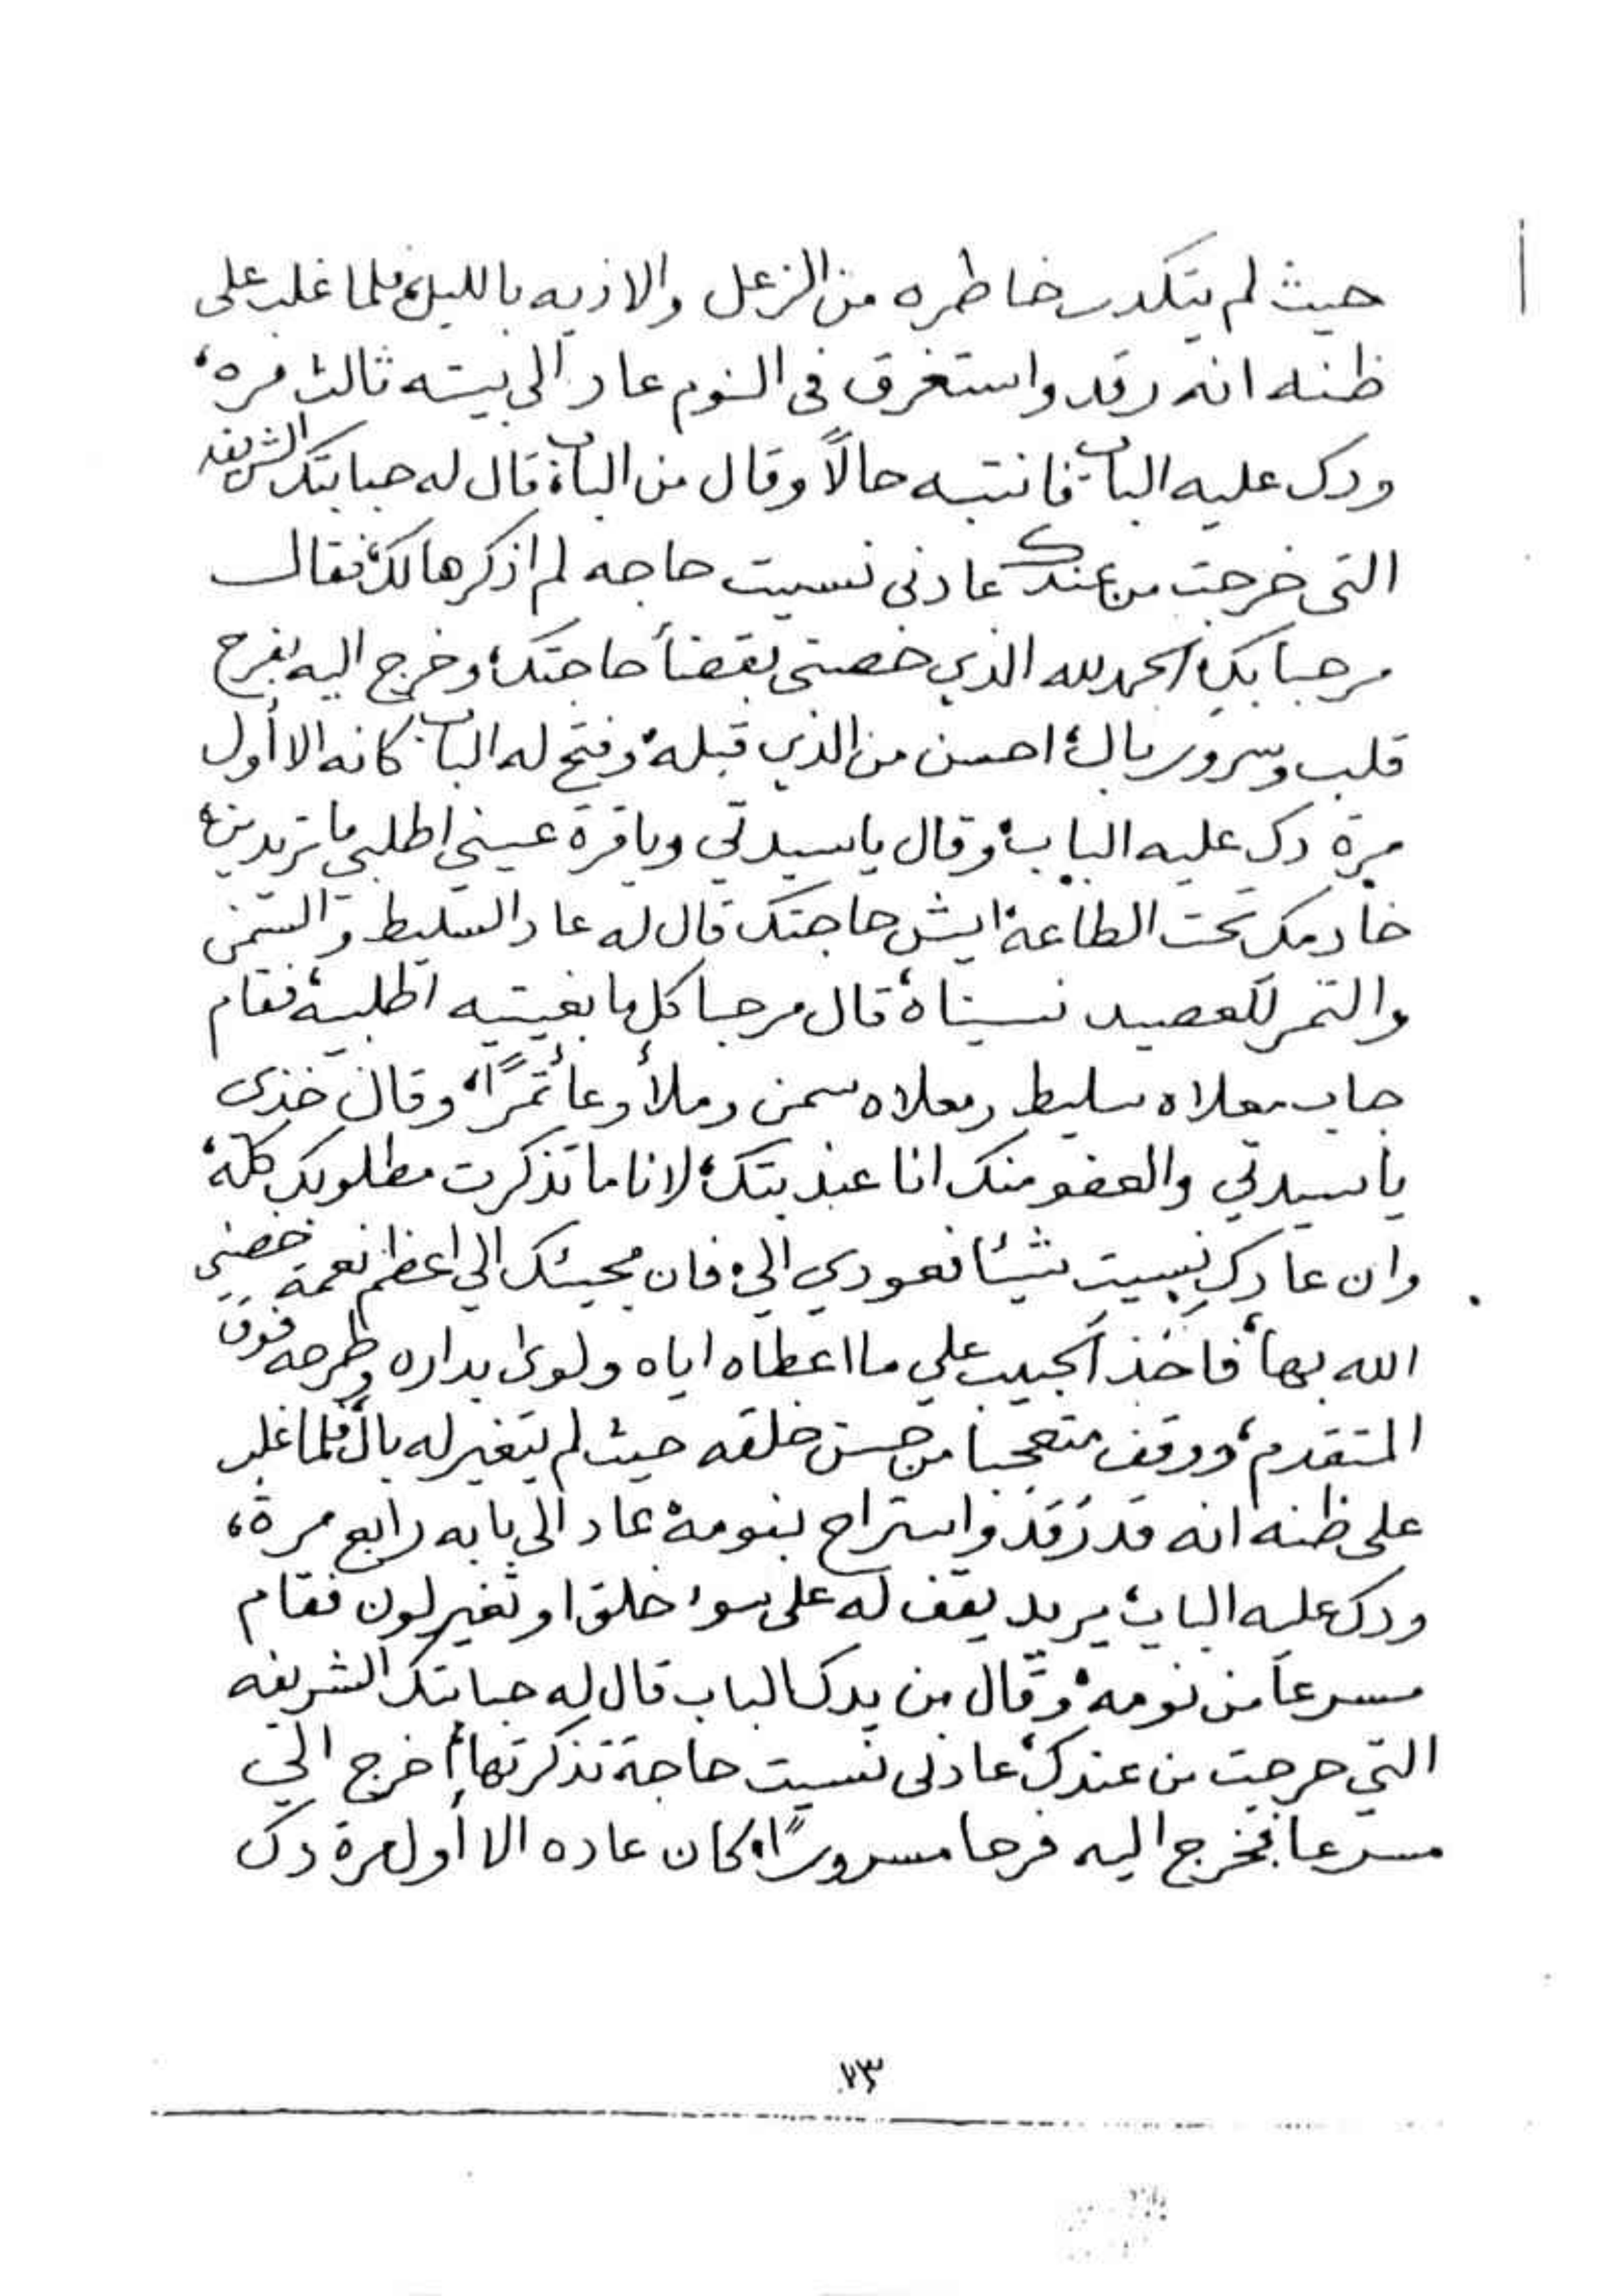 حيث لم يتكدر خاطره من الزعل والاذيه بالليل، فلما غلب على
ظنه انه رقد واستغرق فى النوم عاد الى بيته ثالث مره،
ودك عليه الباب، فانتبه حالاً وقال من الباب، قال له حبابتك الشريفه
التى خرجت من عندك عادنى نسيت حاجه لم اذكرها لك، فقال
مرحبا بك، الحمد لله الذي خصنى بقضأ حاجتك، وخرج اليه بفرح
قلب وسرور بال، احسن من الذي قبله، وفتح له الباب كانه الا أول
مرة دك عليه الباب، وقال ياسيدتي وياقرة عيني اطلبي ما تريدين،
خادمك تحت الطاعة، ايش حاجتك قال له عاد السليط والسمن
والتمر للعصيد نسيناه، قال مرحبا كل ما بغيتيه اطلبيه، فقام
جاب معلاه سليط ومعلاه سمن وملأ وعأ تمرًا، وقال خذى
ياسيدتي والعفو منك انا عذبتك، لانا ما تذكرت مطلوبك كله،
وان عادك نسيت شيئا فعودي الي، فان مجيئك الي اعظم نعمة خصني
الله بها، فاخذ الحبيب علي ما اعطاه اياه ولوى بداره وطرحه فوق
المتقدم، ووقف متعجبا من حسن خلقه حيث لم يتغير له بال، فلما غلب
على ظنه انه قد رقد واستراح بنومه، عاد الى بابه رابع مرة،
ودك عليه الباب، يريد يقف له على سوء خلق او تغير لون فقام
مسرعاً من نومه، وقال من يدك الباب قال له حبابتك الشريفه
التي خرجت من عندك، عادنى نسيت حاجة تذكرتها، أخرج الي
مسرعا، فخرج اليه فرحا مسرورًا، كان عاده الا أول مرة دك
٧٣